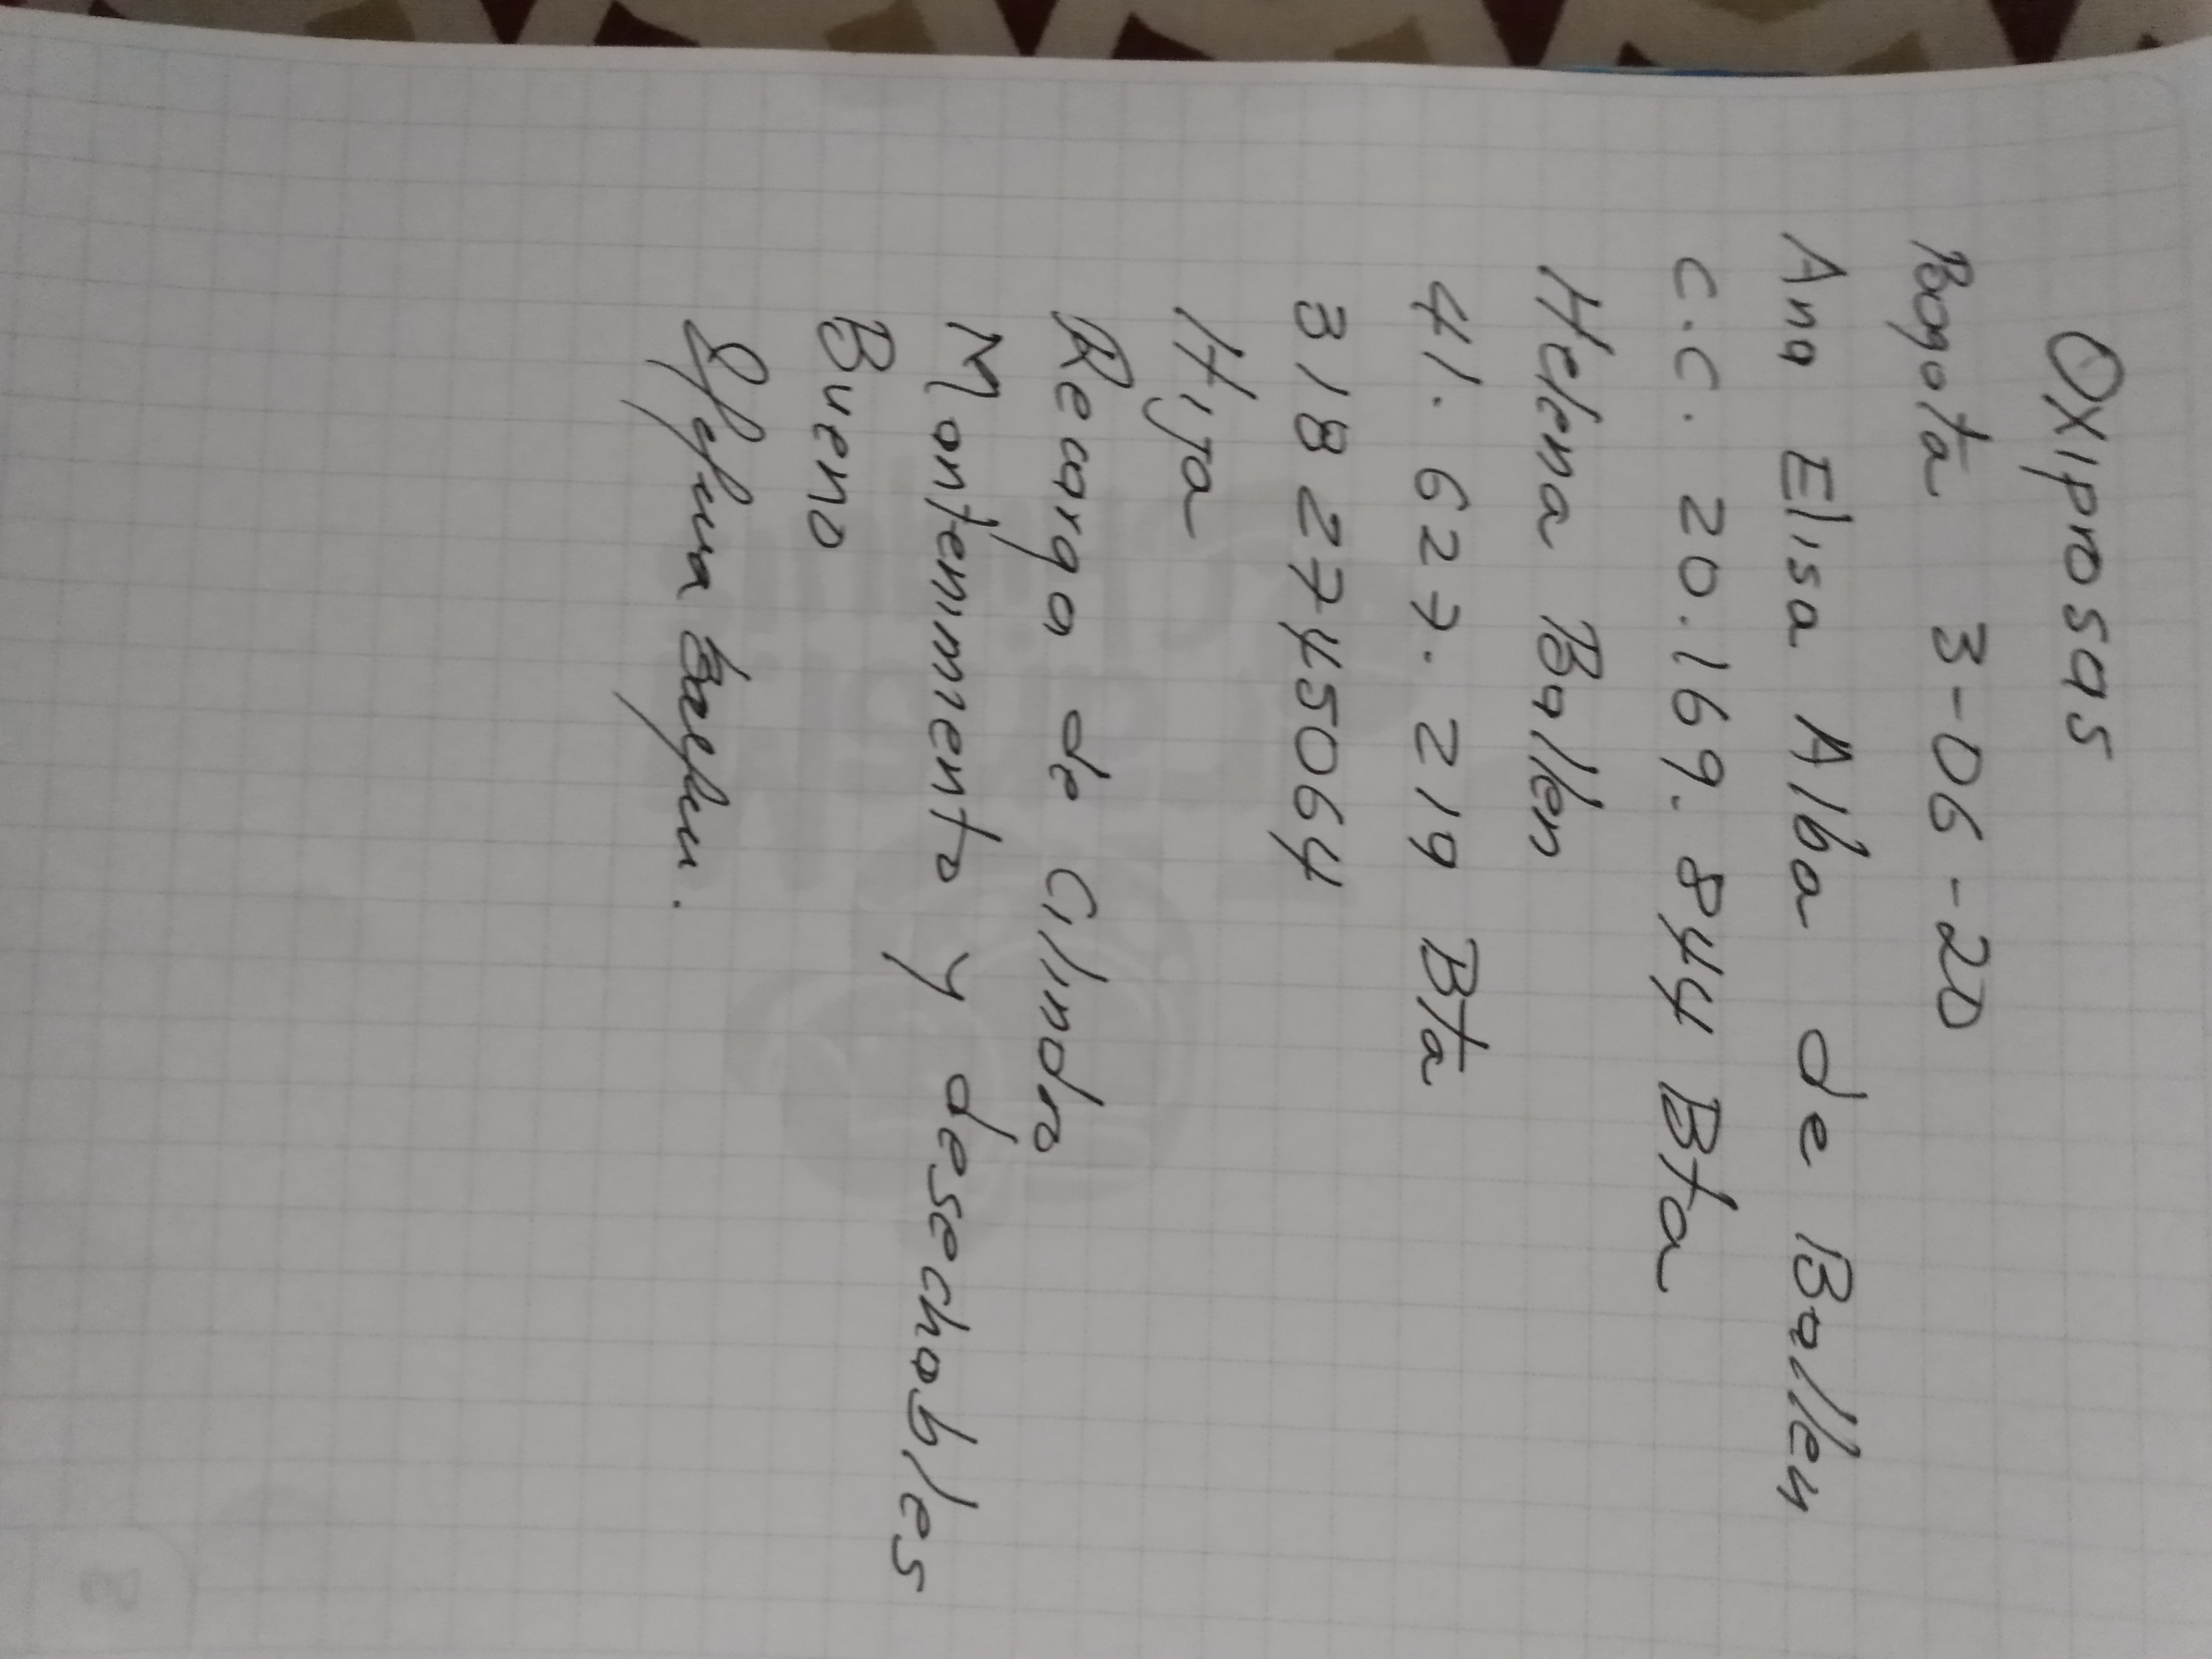 Oxiprosas
Bogotá 3-06-20
Ana Elisa Alba de Ballen
C.C. 20.169.844 Bta
Helena Ballen
41.627.219 Bta
318 2745064
Hija
Recarga de Cilindro
Mantenimiento y desechables
Bueno